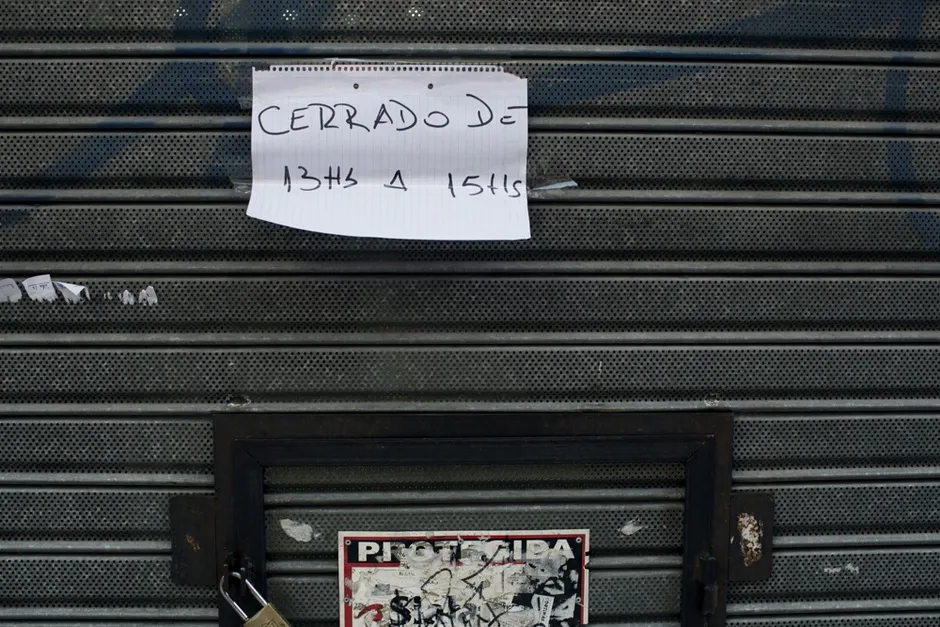 CERRADO DE
13HS A 15HS
PROTEGIDA